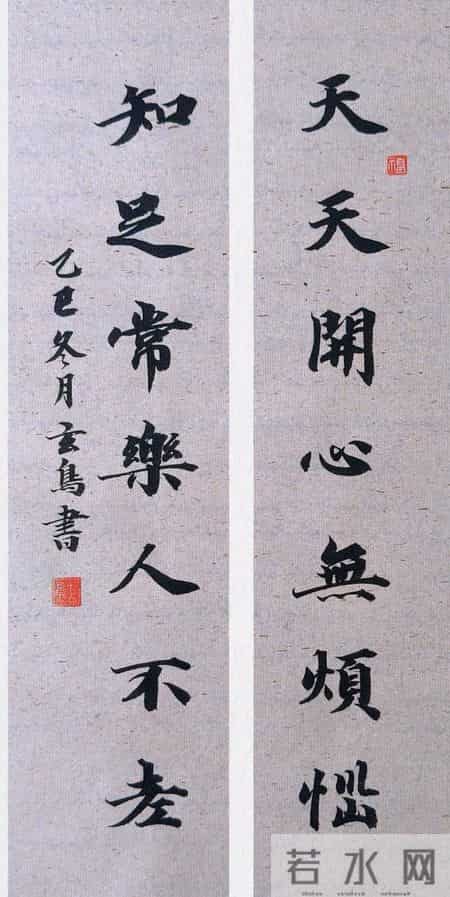 天天開心無煩惱
知足常樂人不老
乙巳冬月玄鳥書
若水网